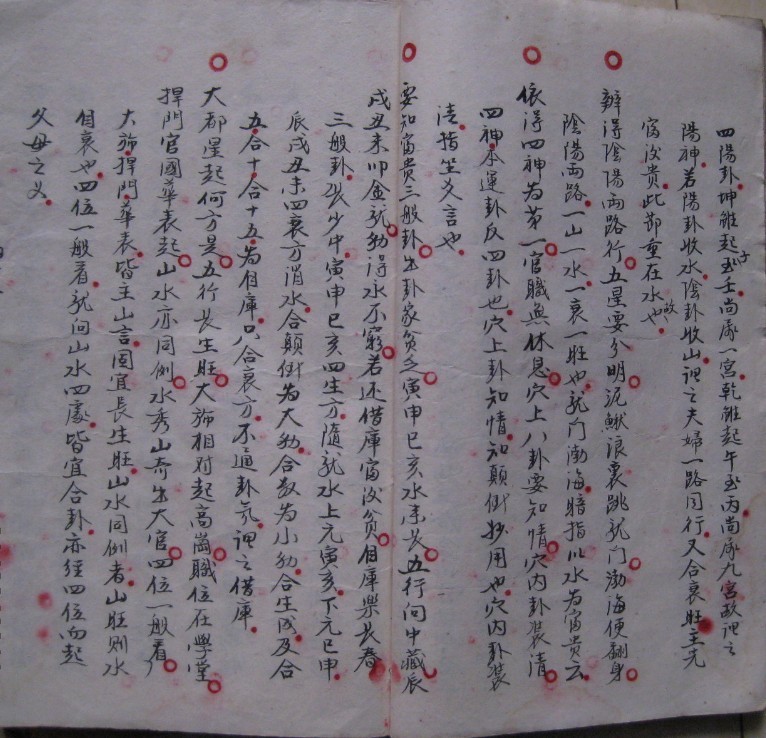 四陽卦坤雖起子至壬尚屬一宮乾雖起午至丙尚屬九宮故謂之
陽神若陽卦收水陰卦收山謂之夫婦一路同行又合衰旺主先
富後貴此卽重在水也故
辨得陰陽兩路行五星要分明泥鰍浪裏跳龍門渤海便翻身
陰陽兩路一山一水一衰一旺也龍門渤海暗指以水為富貴云
依得四神為第一官職無休息穴上八卦要知情穴內卦裝清
四神本運卦反四卦也穴上卦知情知顛倒妙用也穴內卦裝
清指坐爻言也
要知富貴三般卦出卦家貧乏寅申巳亥水來長五行向中藏辰
戌丑未叩金龍動得水不窮若还借庫富後貧自庫樂長春
三般卦張少中寅申巳亥四生方隨龍水上元寅亥下元巳申
辰戌丑未四衰方消水合顛倒為大動合数為小動合生成及合
五合十合十五為自庫只合衰方不通卦氣謂之借庫
大都星起何方是五行長生旺大旆相对起高崗職位在學堂
捍門官國華表起山水亦同例水秀山奇出大官四位一般看
大旆捍門華表皆主山言固宜長生旺山水同例者山旺則水
自衰也四位一般看龍向山水四處皆宜合卦亦經四位而起
父母之义